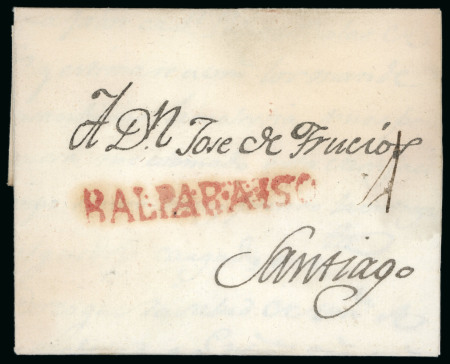 A Dn Jose de Frucios
BALPARAISO
Santiago